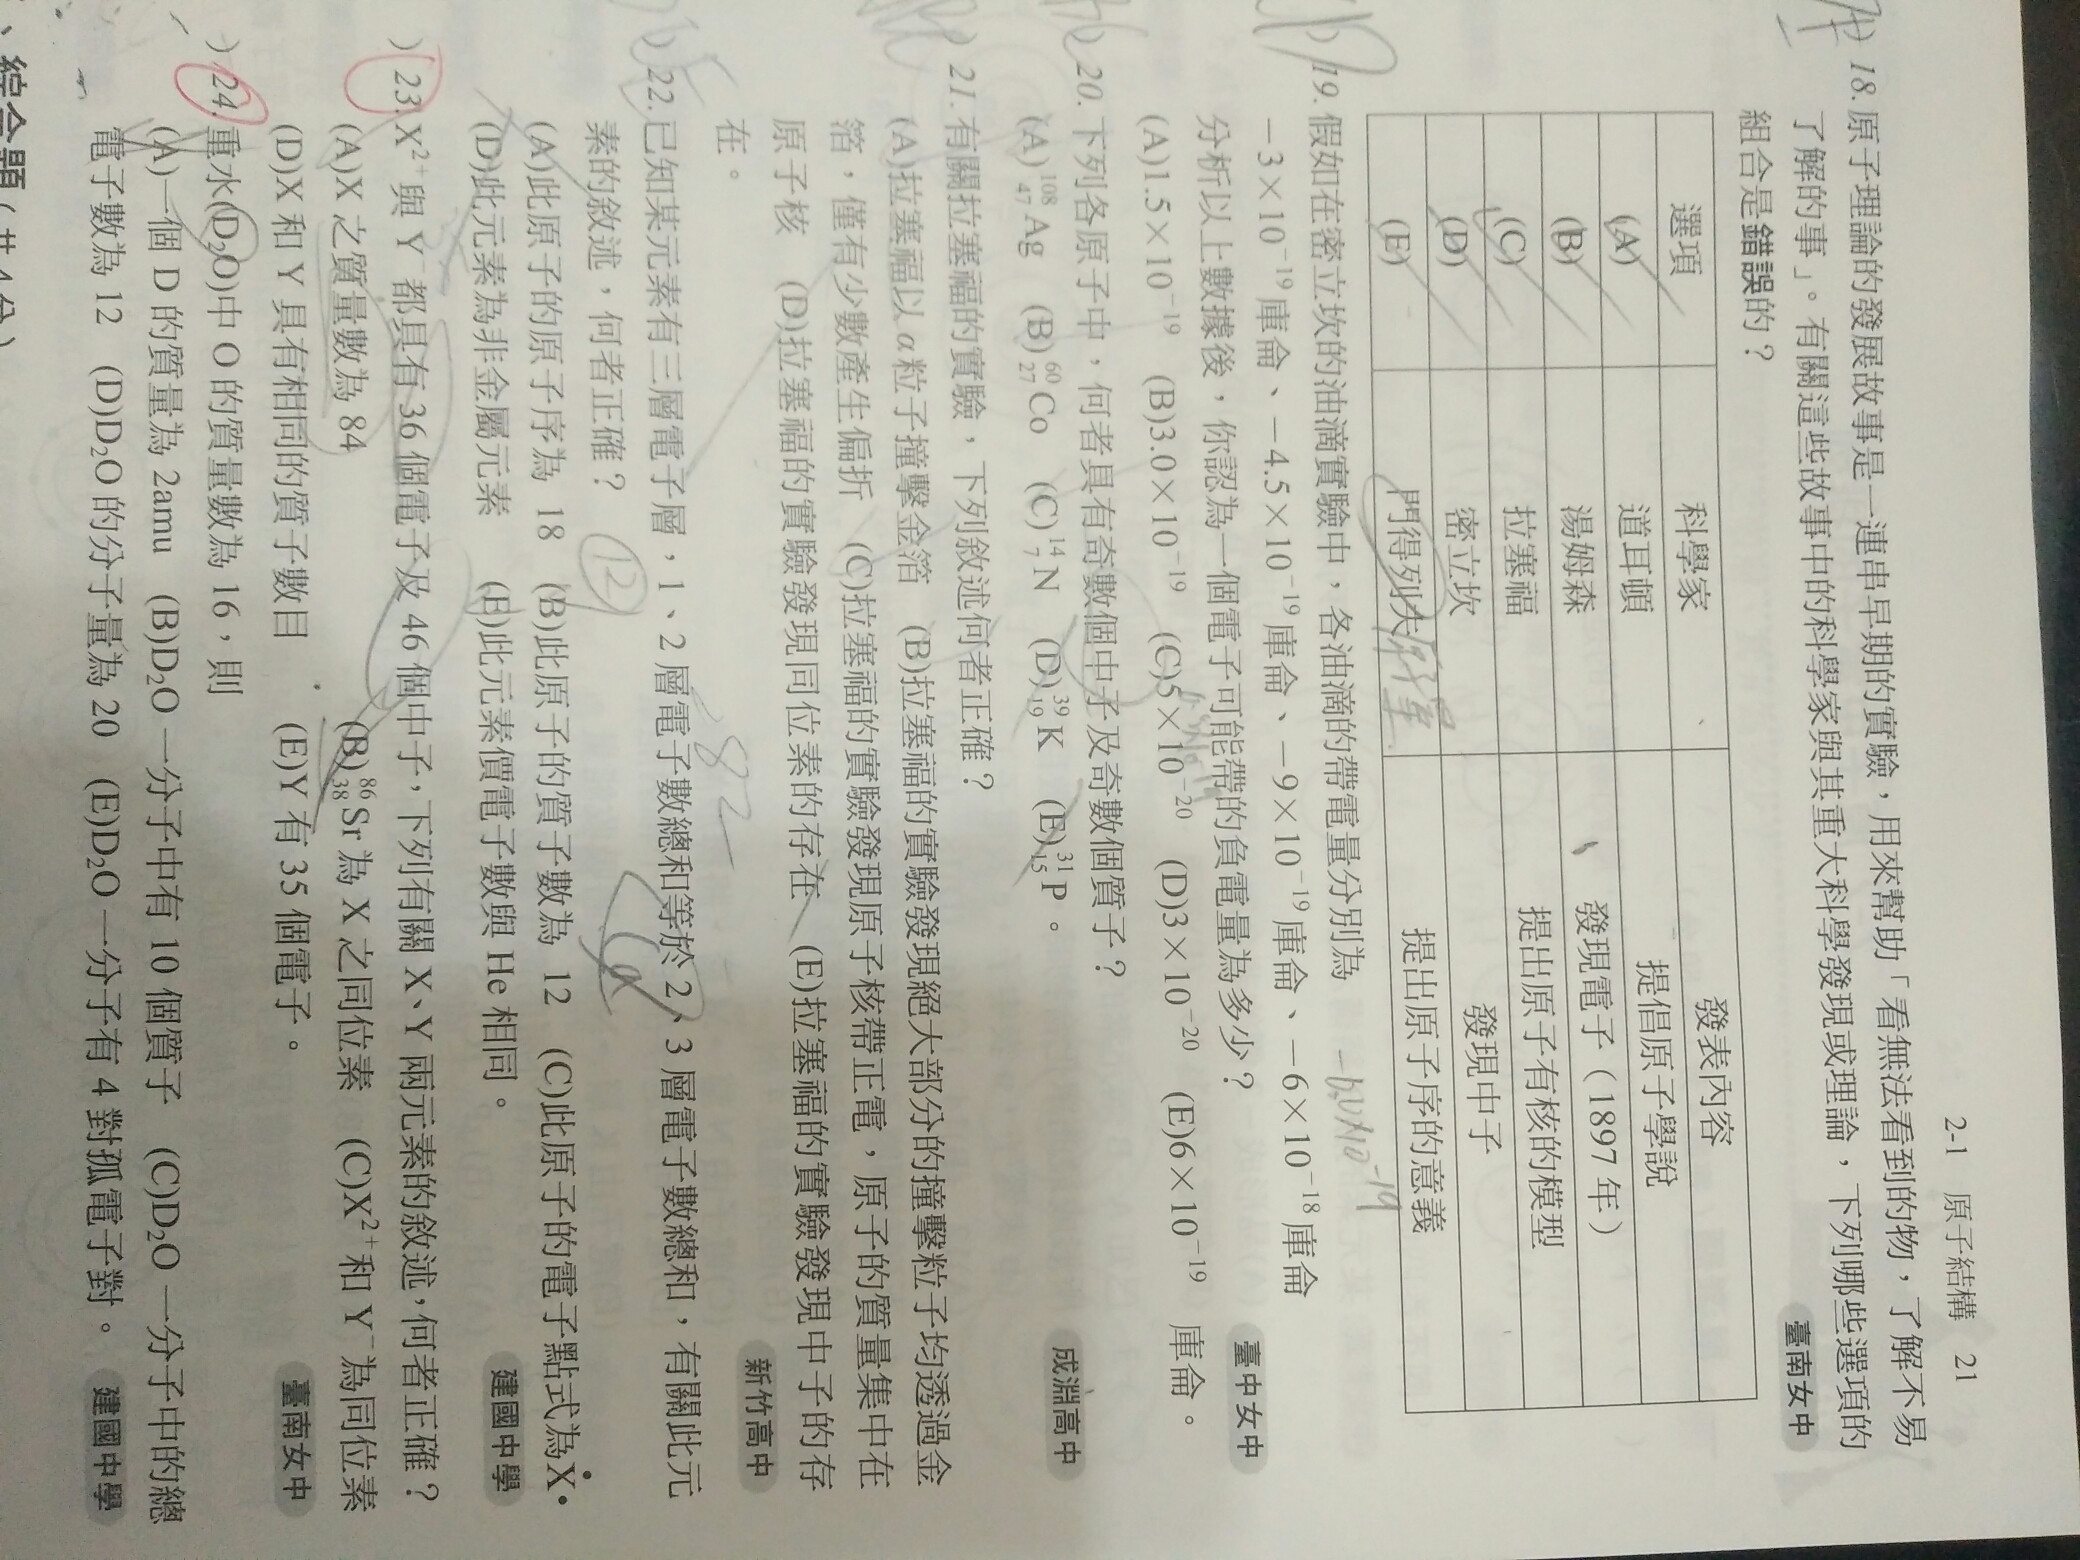 2-1 原子結構 21
18. 原子理論的發展故事是一連串早期的實驗，用來幫助「看無法看到的物，了解不易
了解的事」。有關這些故事中的科學家與其重大科學發現或理論，下列哪些選項的
組合是錯誤的？
臺南女中
選項 科學家 發表內容
(A) 道耳頓 提倡原子學說
(B) 湯姆森 發現電子（1897年）
(C) 拉塞福 提出原子有核的模型
(D) 密立坎 發現中子
(E) 門得列夫 提出原子序的意義
19. 假如在密立坎的油滴實驗中，各油滴的帶電量分別為
−3×10⁻¹⁹庫侖、−4.5×10⁻¹⁹庫侖、−9×10⁻¹⁹庫侖、−6×10⁻¹⁸庫侖
分析以上數據後，你認為一個電子可能帶的負電量為多少？
臺中女中
(A)1.5×10⁻¹⁹ (B)3.0×10⁻¹⁹ (C)5×10⁻²⁰ (D)3×10⁻²⁰ (E)6×10⁻¹⁹ 庫侖。
20. 下列各原子中，何者具有奇數個中子及奇數個質子？
成淵高中
(A)¹⁰⁸₄₇Ag (B)⁶⁰₂₇Co (C)¹⁴₇N (D)³⁹₁₉K (E)³¹₁₅P。
21. 有關拉塞福的實驗，下列敘述何者正確？
(A)拉塞福以α粒子撞擊金箔 (B)拉塞福的實驗發現絕大部分的撞擊粒子均透過金
箔，僅有少數產生偏折 (C)拉塞福的實驗發現原子核帶正電，原子的質量集中在
原子核 (D)拉塞福的實驗發現同位素的存在 (E)拉塞福的實驗發現中子的存
在。
新竹高中
22. 已知某元素有三層電子層，1、2層電子數總和等於2、3層電子數總和，有關此元
素的敘述，何者正確？
12
(A)此原子的原子序為 18 (B)此原子的質子數為 12 (C)此原子的電子點式為Ẋ·
(D)此元素為非金屬元素 (E)此元素價電子數與 He 相同。
建國中學
23. X²⁺與 Y⁻都具有36個電子及46個中子，下列有關 X、Y 兩元素的敘述，何者正確？
(A)X 之質量數為 84 (B)⁸⁶₃₈Sr 為 X 之同位素 (C)X²⁺和 Y⁻為同位素
(D)X 和 Y 具有相同的質子數目 (E)Y 有 35 個電子。
臺南女中
24. 重水(D₂O)中 O 的質量數為 16，則
(A)一個 D 的質量為 2amu (B)D₂O 一分子中有 10 個質子 (C)D₂O 一分子中的總
電子數為 12 (D)D₂O 的分子量為 20 (E)D₂O 一分子有 4 對孤電子對。
建國中學